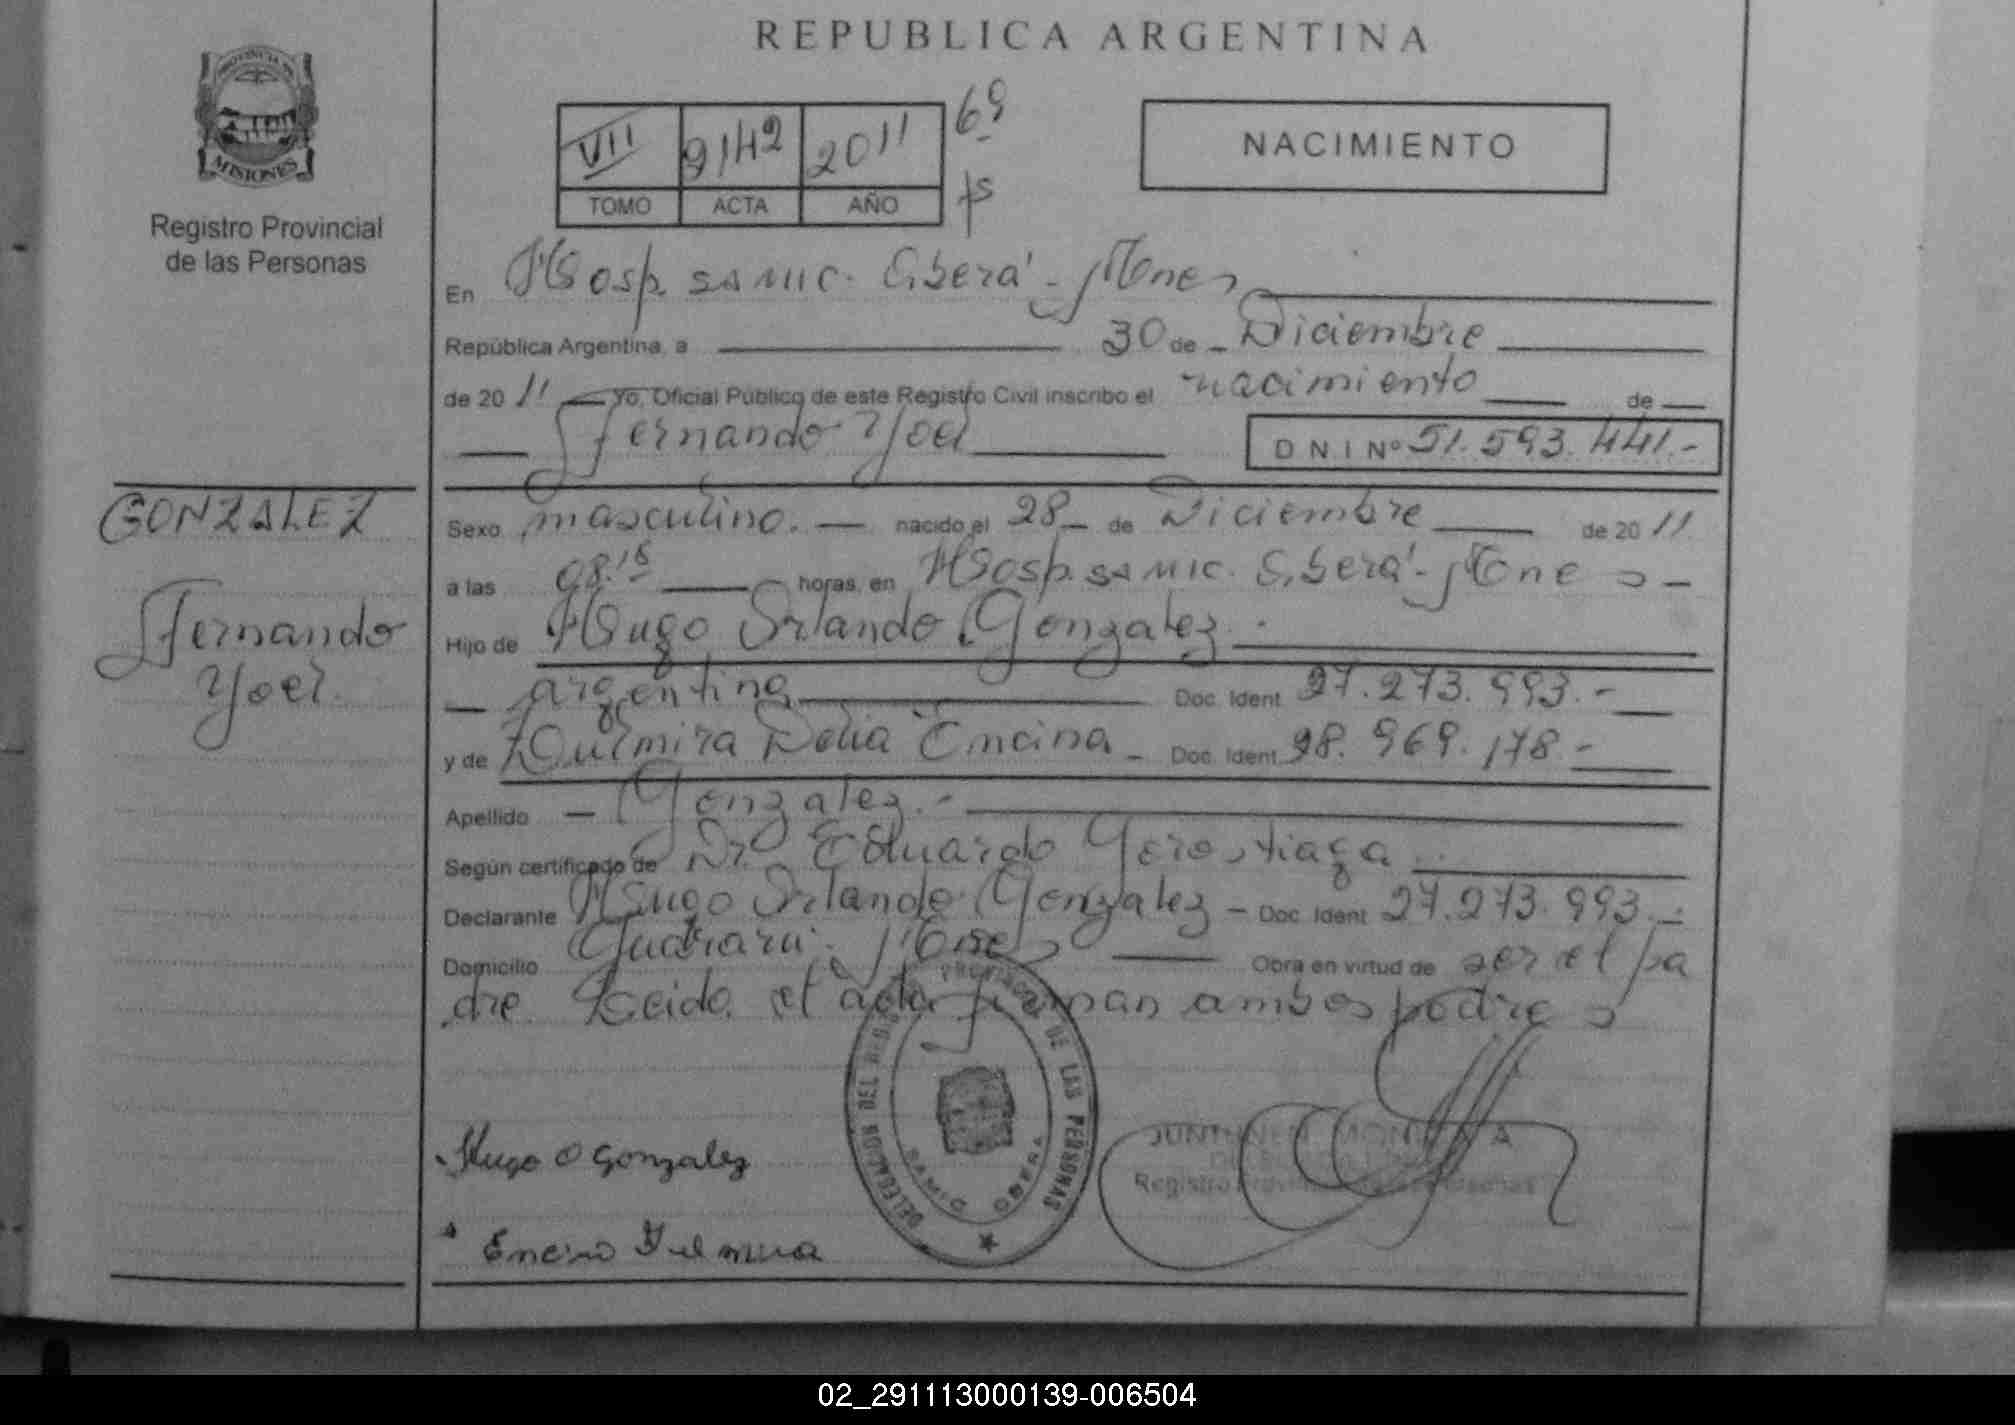 REPUBLICA ARGENTINA
PROVINCIA DE
MISIONES
Registro Provincial
de las Personas
VII 9142 2011
TOMO ACTA AÑO
NACIMIENTO
En Hosp. SAMIC. Oberá - Mnes
República Argentina, a 30 de Diciembre
de 20 11 Yo, Oficial Público de este Registro Civil inscribo el nacimiento de
Fernando Yoel D N I Nº 51.593.441.-
GONZALEZ
Fernando
Yoel.
Sexo masculino. nacido el 28 de Diciembre de 20 11
a las 08.15 horas, en Hosp. SAMIC. Oberá - Mnes -
Hijo de Hugo Orlando Gonzalez.
argentina Doc. Ident 27.273.993.-
y de Dulmira Delia Encina - Doc. Ident 28.969.178.-
Apellido - Gonzalez.-
Según certificado de Dr. Eduardo Gorostiaga
Declarante Hugo Orlando Gonzalez - Doc. Ident 27.273.993.-
Domicilio Guaraní - Mnes Obra en virtud de ser el pa
dre. Leida el acta firman ambos padres
Hugo O Gonzalez
DELEGACION DEL REGISTRO PROVINCIAL DE LAS PERSONAS
SAMIC OBERA
Registro Provincial de las Personas
02_291113000139-006504